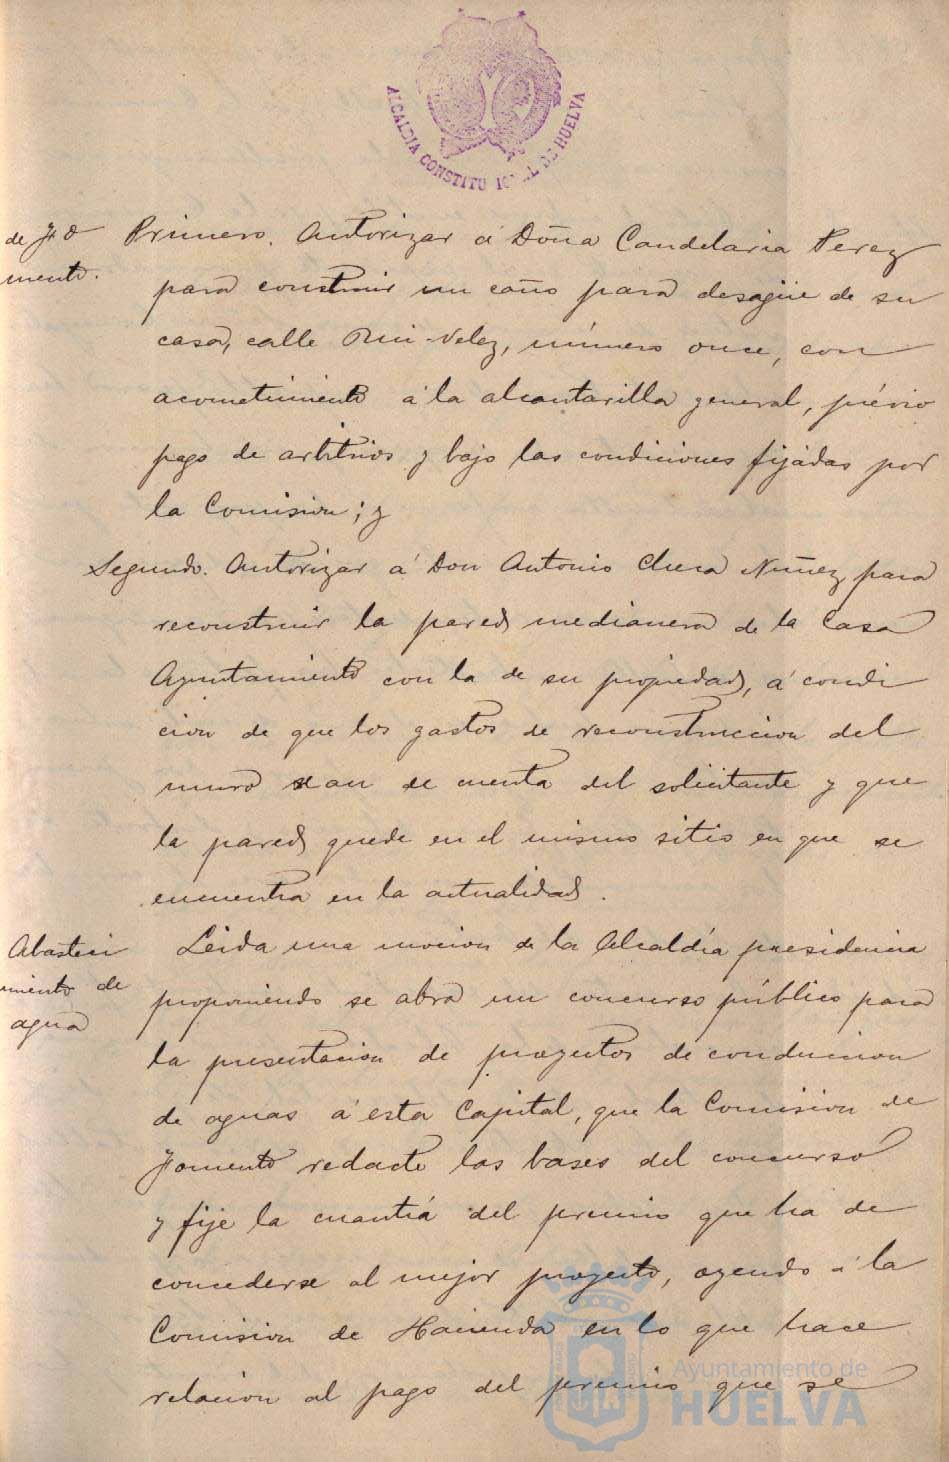 ALCALDIA CONSTITUCIONAL DE HUELVA
de Fo
mento.
Primero. Autorizar á Doña Candelaria Perez
para construir un caño para desagüe de su
casa, calle Rui-Velez, número once, con
acometimiento á la alcantarilla general, prévio
pago de arbitrios y bajo las condiciones fijadas por
la Comision; y
Segundo. Autorizar á Don Antonio Nuñez para
reconstruir la pared medianera de la Casa
Ayuntamiento con la de su propiedad, á condi
cion de que los gastos de reconstruccion del
muro sean de cuenta del solicitante y que
la pared quede en el mismo sitio en que se
encuentra en la actualidad.
Abasteci
miento de
agua
Leida una mocion de la Alcaldía presidencia
proponiendo se abra un concurso público para
la presentacion de proyectos de conduccion
de aguas á esta Capital, que la Comision de
Fomento redacte las bases del concurso
y fije la cuantiá del premio que ha de
concederse al mejor proyecto, oyendo á la
Comision de Hacienda en lo que hace
relacion al pago del premio que se
Ayuntamiento de
HUELVA